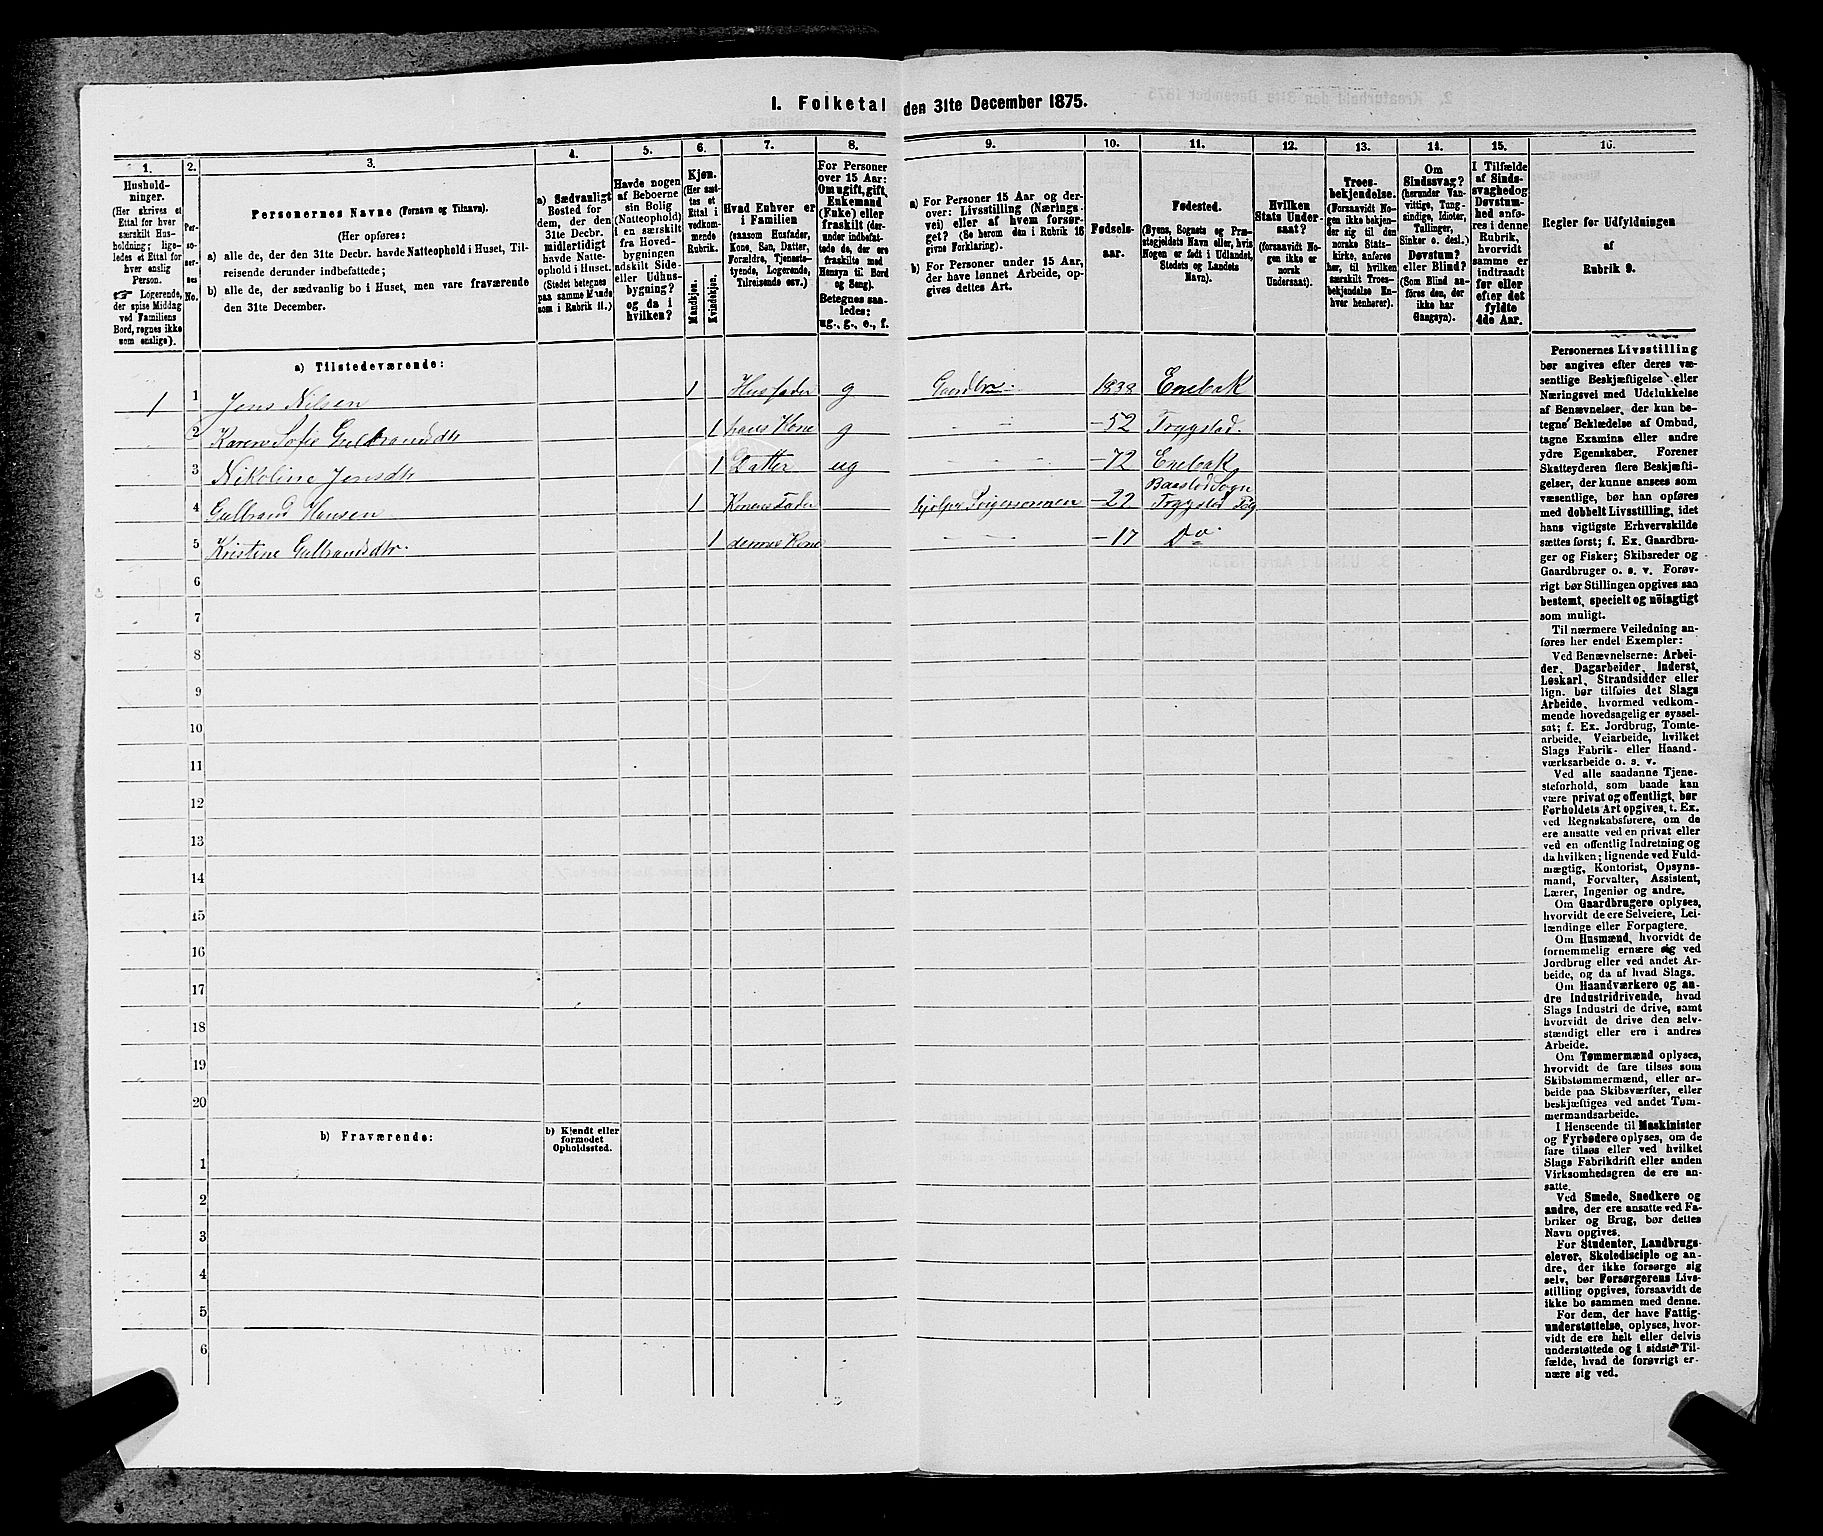 1. Folketal den 31te December 1875.
1.
2.
3.
4.
5.
6.
7.
8.
9.
10.
11.
12.
13.
14.
15.
16.
Hushold-
ninger.
(Her skrives et
Ettal for hver
særskilt Hus-
holdning; lige-
ledes et Ettal for
hver enslig
Person.
☞ Logerende,
der spise Middag
ved Familiens
Bord, regnes ikke
som enslige).
Per-
so-
ner-
nes
No.
Personernes Navne (Fornavn og Tilnavn).
(Her opføres:
a) alle de, der den 31te Decbr. havde Natteophold i Huset, Til-
reisende derunder indbefattede;
b) alle de, der sædvanlig bo i Huset, men vare fraværende
den 31te December.
a) Sædvanligt
Bosted for
dem, der den
31te Decbr.
midlertidigt
havde Natte-
ophold i Huset.
(Stedet betegnes
paa samme Maade
som i Rubrik 11.)
Havde nogen
af Beboerne
sin Bolig
(Natteophold)
i en særskilt
fra Hoved-
bygningen
adskilt Side-
eller Udhus-
bygning?
og da i
hvilken?
Kjøn.
(Her sæt-
tes et
Ettal i
vedkom-
mende
Rubrik.
Mandkjøn.
Kvindekjøn.
Hvad Enhver er
i Familien
(saasom Husfader,
Kone, Søn, Datter,
Forældre, Tjenests-
tyende, Logerende,
Tilreisende osv.)
For Personer
over 15 Aar:
Om ugift, gift,
Enkemand
(Enke) eller
fraskilt (her-
under indbefat-
tede de, der ere
fraskilte med
Hensyn til Bord
og Seng).
Betegnes saa-
ledes:
ug., g., e., f.
a) For Personer 15 Aar og der-
over: Livsstilling (Nærings-
vei) eller af hvem forsør-
get? (Se herom den i Rubrik 16
givne Forklaring).
b) For Personer under 15 Aar,
der have lønnet Arbeide, op-
gives dettes Art.
Fødsels-
aar.
Fødested.
(Byens, Sognets og Præ-
stegjeldets Navn eller, hvis
Nogen er født i Udlandet,
Stedets og Landets
Navn).
Hvilken
Stats Under-
saat?
(forsaavidt No-
gen ikke er
norsk
Undersaat).
Troes-
bekjendelse.
(Forsaavidt No-
gen ikke bekjen-
der sig til den
norske Stats-
kirke, anføres
her, til hvilken
særskilt Troes-
bekjendelse En-
hver henhører).
Om
Sindssvag?
(herunder Van-
vittige, Tung-
sindige, Idioter,
Tullinger,
Sinker o. desl.)
Døvstum?
eller Blind?
(Som Blind an-
føres den, der
ikke har
Gangsyn).
I Tilfælde
af Sinds-
svaghed og
Døvstum-
hed anfø-
res i denne
Rubrik,
hvorvidt
samme er
indtraadt
før eller
efter det
fyldte
4de Aar.
Regler for Udfyldningen
af
Rubrik 9.
a) Tilstedeværende:
1 1 Jens Nilsen 1 Husfader g Gaardbr 1838 Enebak
2 Karen Sofie Gulbransdtr 1 hans Kone g — — —52 Trygstad.
3 Nikoline Jensdtr 1 Datter ug — — — —72 Enebak
4 Gulbrand Hansen 1 Konens Fader hjelper Svigersønnen —22 Baastad Sogn
Trygstad Pg
5 Kristine Gulbrandsdtr. 1 dennes Kone — — —17 Do
6
7
8
9
10
11
12
13
14
15
16
17
18
19
20
b) Fraværende:
b) Kjendt eller
formodet
Opholdssted.
1
2
3
4
5
6
Personernes Livsstilling
bør angives efter deres væ-
sentlige Beskjæftigelse eller
Næringsvei med Udelukkelse
af Benævnelser, der kun be-
tegne Beklædelse af Ombud,
tagne Examina eller andre
ydre Egenskaber. Forener
Skatteyderen flere Beskjæfti-
gelser, der kunne ansees som
væsentlige, bør han opføres
med dobbelt Livsstilling, idet
hans vigtigste Erhvervskilde
sættes først; f. Ex. Gaardbru-
ger og Fisker; Skibsreder og
Gaardbruger o. s. v. Forøv-
rigt bør Stillingen opgives saa
bestemt, specielt og nöiagtigt
som muligt.
Til nærmere Veiledning an-
føres her endel Exempler:
Ved Benævnelserne: Arbei-
der, Dagarbeider, Inderst,
Løskarl, Strandsidder eller
lign. bør tilføies det Slags
Arbeide, hvormed vedkom-
mende hovedsagelig er syssel-
sat; f. Ex. Jordbrug, Tomte-
arbeide, Veiarbeide, hvilket
Slags Fabrik- eller Haand-
værksarbeide o. s. v.
Ved alle saadanne Tjene-
steforhold, som baade kan
være privat og offentligt, bør
Forholdets Art opgives, t. Ex.
ved Regnskabsførere, om de
ere ansatte ved en privat eller
ved en offentlig Indretning og
da hvilken; lignende ved Fuld-
mægtig, Kontorist, Opsyns-
mand, Forvalter, Assistent,
Lærer, Ingeniør og andre.
Om Gaardbrugere oplyses,
hvorvidt de ere Selveiere, Lei-
lændinge eller Forpagtere.
Om Husmænd, hvorvidt de
fornemmelig ernære sig ved
Jordbrug eller ved andet Ar-
beide, og da af hvad Slags.
Om Haandværkere og an-
dre Industridrivende, hvad
Slags Industri de drive, samt
hvorvidt de drive den selv-
stændigt eller ere i andres
Arbeide.
Om Tømmermænd oplyses,
hvorvidt de fare tilsøs som
Skibstømmermænd, eller ar-
beide paa Skibsværfter, eller
beskjæftiges ved andet Tøm-
mermandsarbeide.
I Henseende til Maskinister
og Fyrbødere oplyses, om de
fare tilsøs eller ved hvilket
Slags Fabrikdrift eller anden
Virksomhedsgren de ere an-
satte.
Ved Smede, Snedkere og
andre, der ere ansatte ved Fa-
briker og Brug, bør dettes
Navn opgives.
For Studenter, Landbrugs-
elever, Skoledisciple og an-
dre, der ikke forsørge sig
selv, bør Forsørgerens Livs-
stilling opgives, forsaavidt de
ikke bo sammen med denne.
For dem, der have Fattig-
understøttelse, oplyses, hvor-
vidt de ere helt eller delvis
understøttede og i sidste Til-
fælde, hvad de forøvrigt er-
nære sig ved.